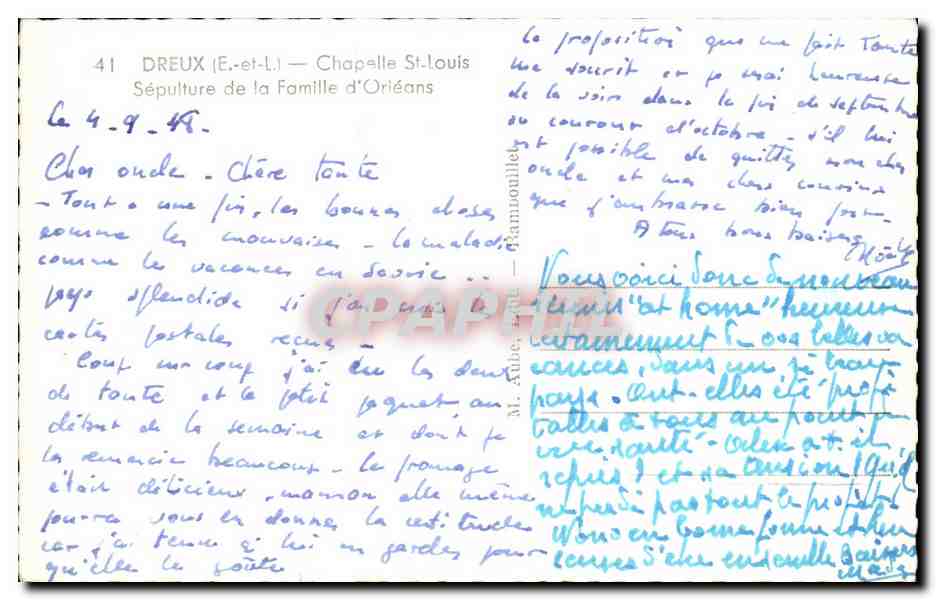 41 DREUX (E.-et-L.) — Chapelle St-Louis
Sépulture de la Famille d'Orléans
le 4-9-48.
Cher oncle - Chère tante
- Tout a une fin, les bonnes choses
comme les mauvaises - la maladie
comme les vacances en Savoie ..
pays splendide si j'en crois les
cartes postales reçues -
Coup sur coup j'ai eu les deux
de tante et le petit paquet au
début de la semaine et dont je
la remercie beaucoup - le fromage
était délicieux, maman elle même
pourra vous en donner la certitude
car j'ai tenu à lui en garder pour
qu'elle le goûte
La proposition que me fait Tante
me sourit et je serai heureuse
de la voir dans la fin de septembre
ou courant d'octobre - s'il lui
est possible de quitter mon cher
oncle et mes chers cousins
que j'embrasse bien fort -
A tous bons baisers
M. Aubé, - Rambouillet
CPAPHIL
Vous voici donc de nouveau
réunis "at home" heureux
certainement de vos belles va
cances, dans un si beau
pays. Ont-elles été profi
tables à tous au point de
vue santé - a-t-il
repris ? et sa tension ! Qu'il
ne perde pas tout le profit
Vous en bonne forme et heu
reuses d'être ensemble Baisers